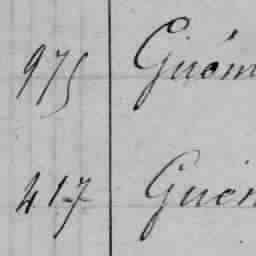 975 Guóm
417 Guen